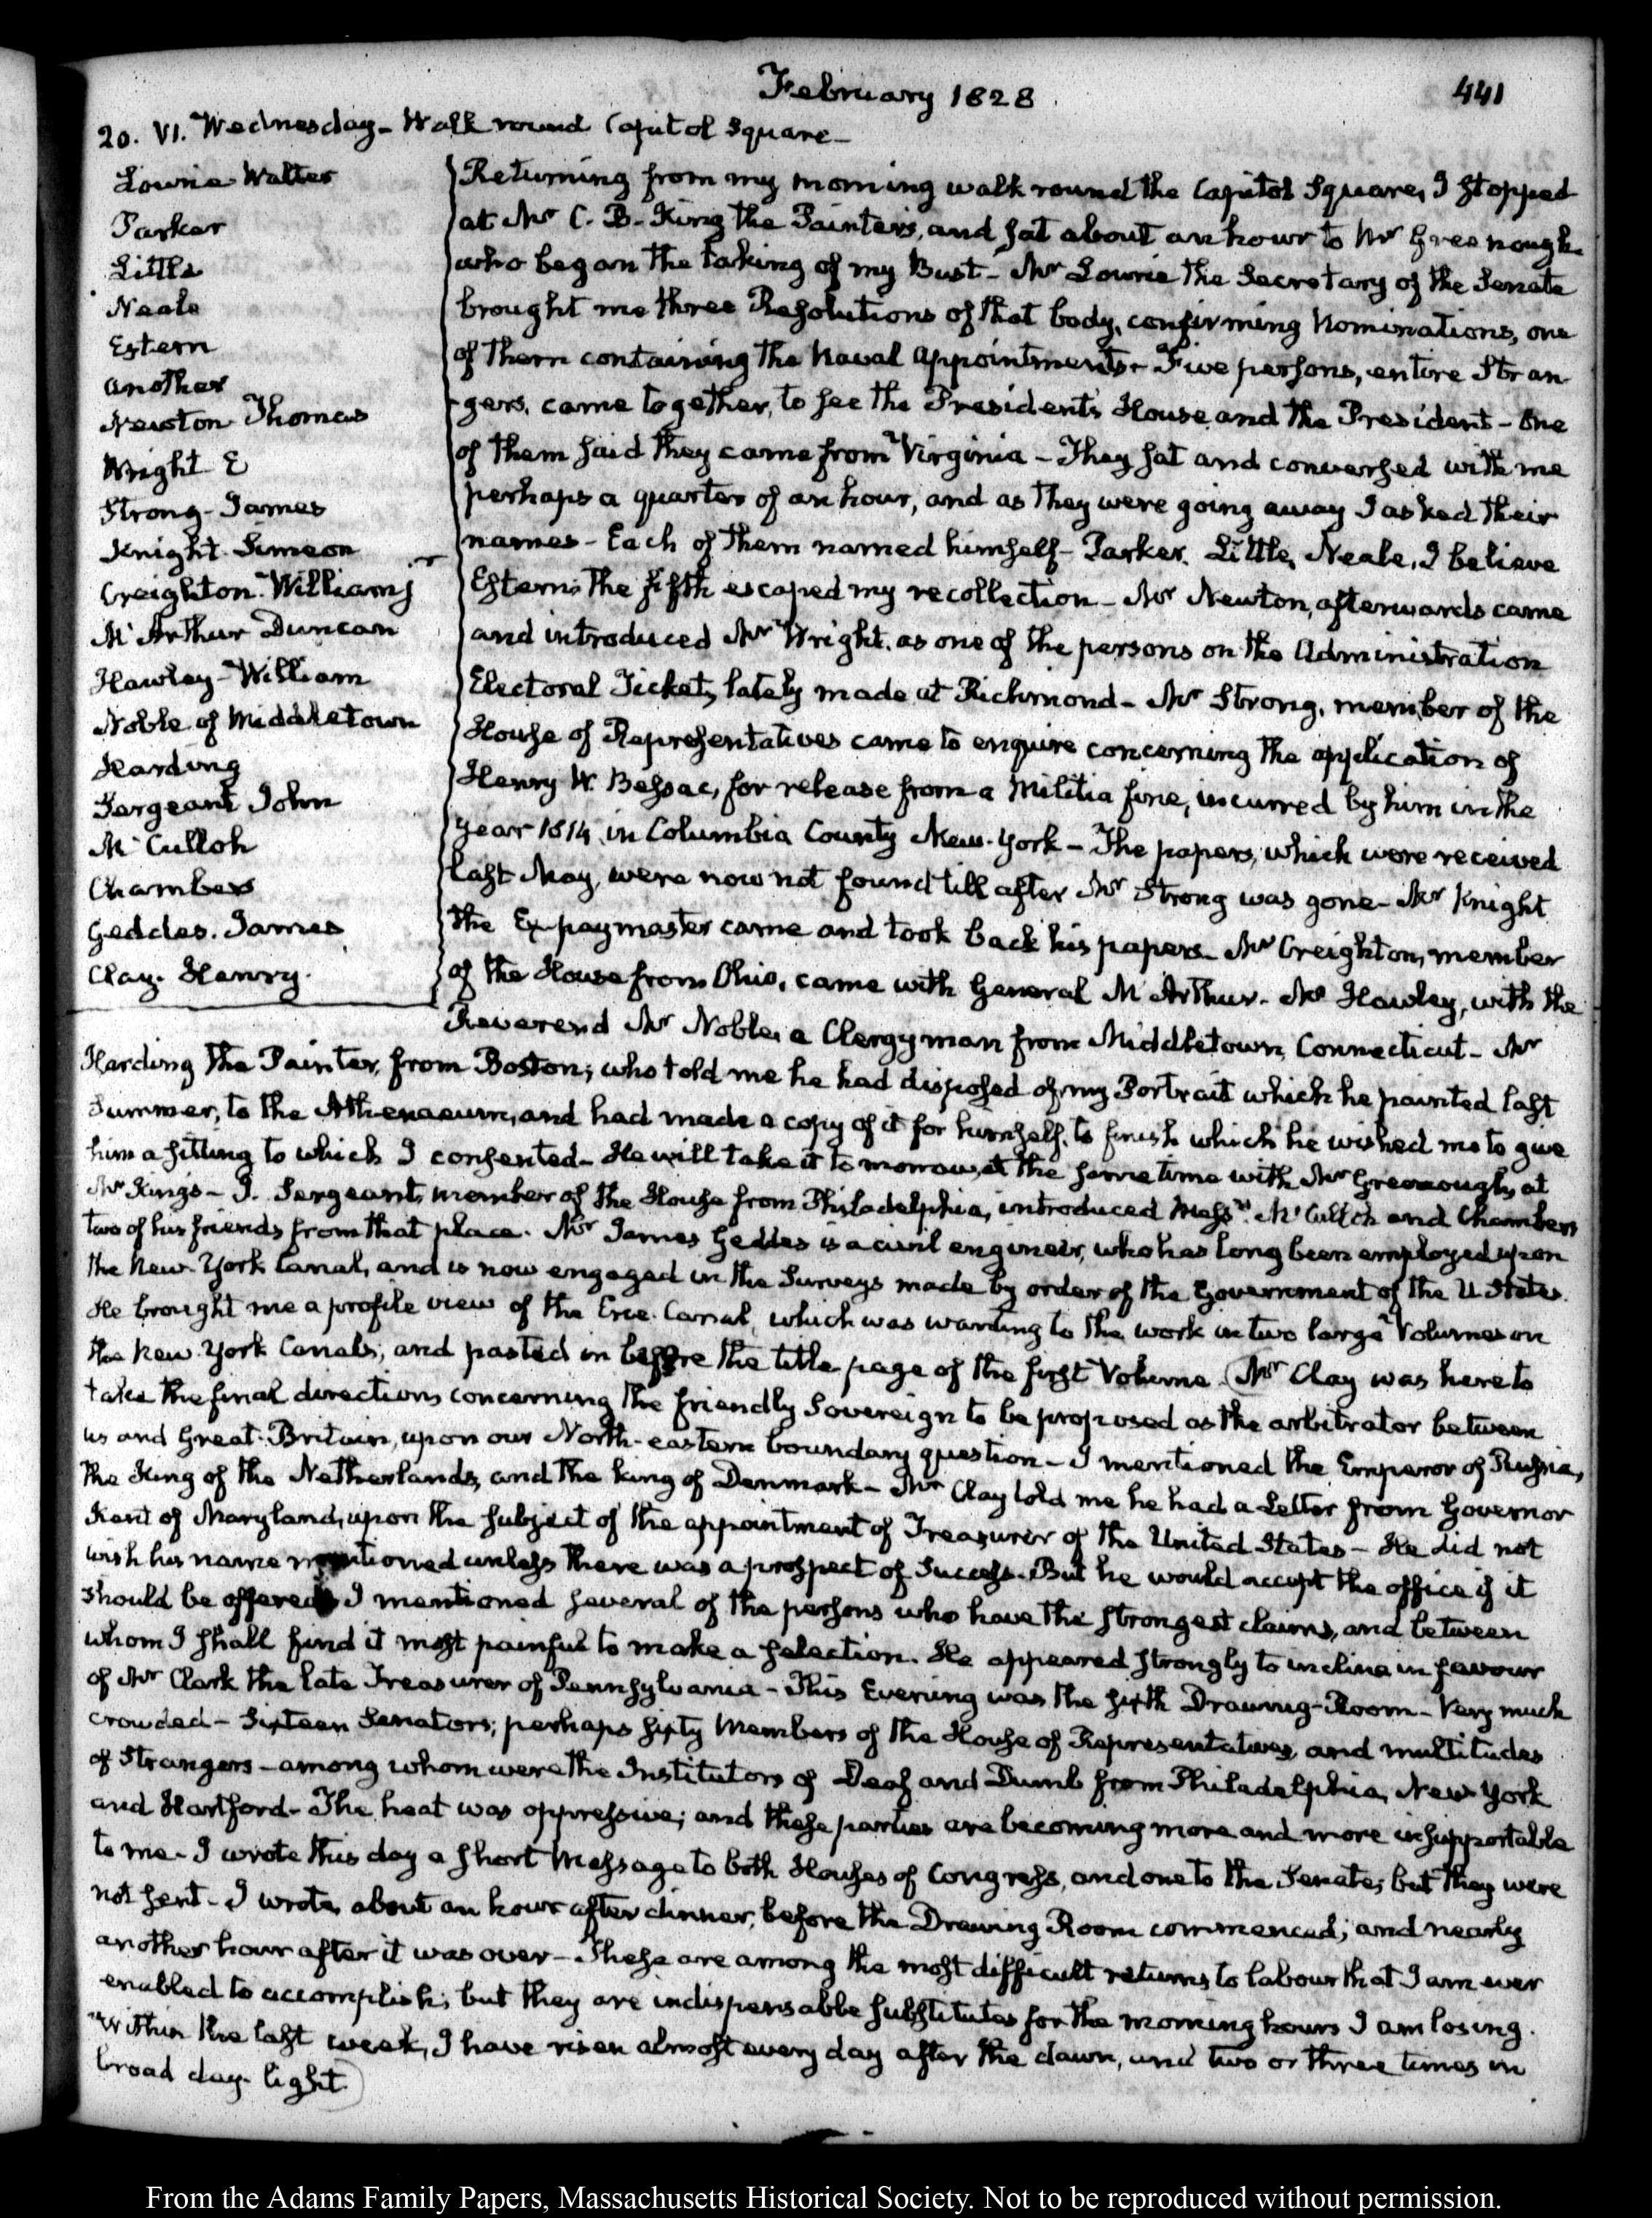 February 1828.
441
20. VI. Wednesday- Walk round Capitol Square-
Lowrie Walter
Parker
Little
Neale
Estern
another
Newton Thomas
Wright E
Strong- James
Knight- Simeon
Creighton- William J
Mc Arthur Duncan
Hawley- William
Noble of Middletown
Harding
Sergeant John
Mc Culloh
Chambers
Geddes. James
Clay. Henry.
Returning from my morning walk round the Capitol Square, I stopped
at Mr C. B. King the Painter's, and sat about an hour to Mr Greenough
who began the taking of my Bust- Mr Lowrie the Secretary of the Senate
brought me three Resolutions of that body, confirming Nominations, one
of them containing the Naval appointments- Five persons, entire Stran-
-gers, came together, to see the President's House and the President- One
of them said they came from Virginia- They sat and conversed with me
perhaps a quarter of an hour, and as they were going away I asked their
names- Each of them named himself- Parker, Little, Neale, I believe
Estern; the fifth escaped my recollection- Mr Newton, afterwards came
and introduced Mr Wright, as one of the persons on the Administration
Electoral Ticket, lately made at Richmond- Mr Strong, member of the
House of Representatives came to enquire concerning the application of
Henry W. Bessac, for release from a Militia fine, incurred by him in the
year 1814 in Columbia County New-York- The papers, which were received
last May, were now not found till after Mr Strong was gone- Mr Knight
the Ex-paymaster came and took back his papers- Mr Creighton, member
of the House from Ohio, came with General Mc Arthur- Mr Hawley, with the
Reverend Mr Noble, a Clergyman from Middletown, Connecticut- Mr
Harding the Painter, from Boston; who told me he had disposed of my Portrait which he painted last
Summer, to the Athenaeum, and had made a copy of it for himself, to finish which he wished me to give
him a sitting to which I consented- He will take it tomorrow, at the same time with Mr Greenough, at
Mr King's- J. Sergeant, member of the House from Philadelphia, introduced Messrs. Mc Culloh and Chambers
two of his friends from that place. Mr James Geddes is a civil engineer, who has long been employed upon
the New-York Canal, and is now engaged in the Surveys made by order of the Government of the U. States.
He brought me a profile view of the Erie Canal, which was wanting to the work in two large Volumes on
the New-York Canals, and pasted in before the title page of the first Volume. (Mr Clay was here to
take the final directions concerning the friendly Sovereign to be proposed as the arbitrator between
us and Great-Britain, upon our North-eastern boundary question- I mentioned the Emperor of Russia,
the King of the Netherlands, and the King of Denmark- Mr Clay told me he had a Letter from Governor
Kent of Maryland, upon the subject of the appointment of Treasurer of the United States- He did not
wish his name mentioned unless there was a prospect of Success. But he would accept the office if it
should be offered. I mentioned several of the persons who have the strongest claims, and between
whom I shall find it most painful to make a selection. He appeared strongly to incline in favour
of Mr Clark the late Treasurer of Pennsylvania- This Evening was the sixth Drawing-Room- Very much
crowded- Sixteen Senators; perhaps sixty Members of the House of Representatives, and multitudes
of Strangers- among whom were the Institutors of Deaf and Dumb from Philadelphia, New York
and Hartford- The heat was oppressive; and these parties are becoming more and more insupportable
to me- I wrote this day a short Message to both Houses of Congress, and one to the Senate; but they were
not sent- I wrote, about an hour after dinner, before the Drawing Room commenced; and nearly
another hour after it was over- These are among the most difficult returns to labour that I am ever
enabled to accomplish; but they are indispensable substitutes for the morning hours I am losing.
Within the last week, I have risen almost every day after the dawn, and two or three times in
broad day-light)
From the Adams Family Papers, Massachusetts Historical Society. Not to be reproduced without permission.